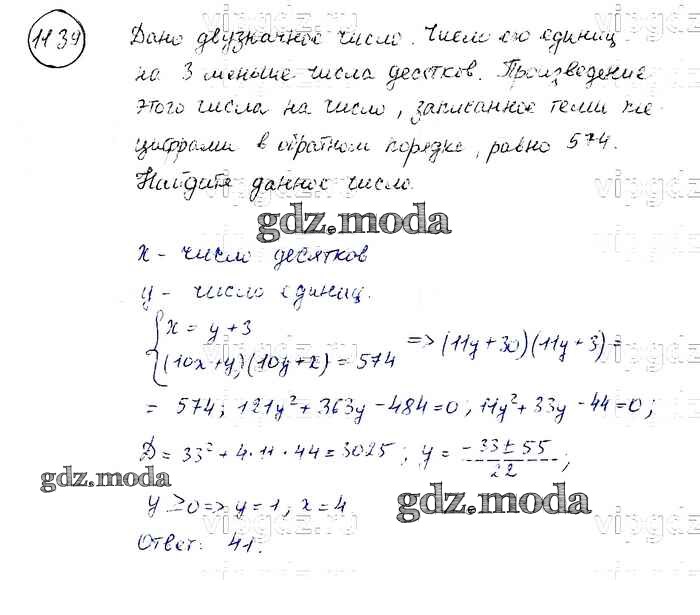 1134
Дано двузначное число. Число его единиц
на 3 меньше числа десятков. Произведение
этого числа на число, записанное теми же
цифрами в обратном порядке, равно 574.
Найдите данное число.
gdz.moda
x - число десятков
y - число единиц.
{ x = y + 3
(10x+y)(10y+x) = 574 => (11y+30)(11y+3) =
= 574; 121y² + 363y - 484 = 0; 11y² + 33y - 44 = 0;
D = 33² + 4·11·44 = 3025; y = (-33 ± 55)/22;
gdz.moda
y ≥ 0 => y = 1; x = 4
gdz.moda
Ответ: 41.